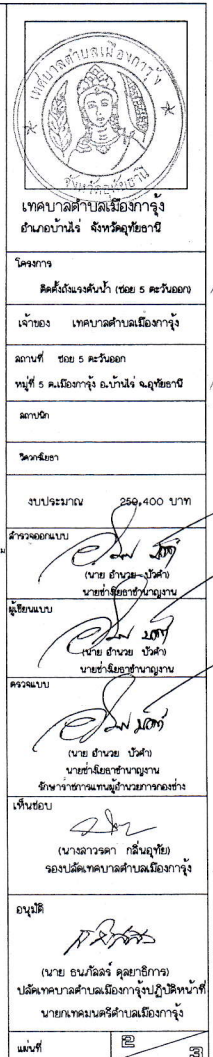 เทศบาลตำบลเมืองการุ้ง
จังหวัดอุทัยธานี
เทศบาลตำบลเมืองการุ้ง
อำเภอบ้านไร่ จังหวัดอุทัยธานี
โครงการ
ติดตั้งถังแรงดันน้ำ (ซอย 5 ตะวันออก)
เจ้าของ เทศบาลตำบลเมืองการุ้ง
สถานที่ ซอย 5 ตะวันออก
หมู่ที่ 5 ต.เมืองการุ้ง อ.บ้านไร่ จ.อุทัยธานี
สถาปนิก
วิศวกรโยธา
งบประมาณ 259,400 บาท
สำรวจออกแบบ
(นาย อำนวย บัวคำ)
นายช่างโยธาชำนาญงาน
ผู้เขียนแบบ
(นาย อำนวย บัวคำ)
นายช่างโยธาชำนาญงาน
ตรวจแบบ
(นาย อำนวย บัวคำ)
นายช่างโยธาชำนาญงาน
รักษาราชการแทนผู้อำนวยการกองช่าง
เห็นชอบ
(นางลาวรดา กลิ่นอุทัย)
รองปลัดเทศบาลตำบลเมืองการุ้ง
อนุมัติ
(นาย ธนภัลลร์ ดุลยาธิการ)
ปลัดเทศบาลตำบลเมืองการุ้งปฏิบัติหน้าที่
นายกเทศมนตรีตำบลเมืองการุ้ง
แผ่นที่ 2/3